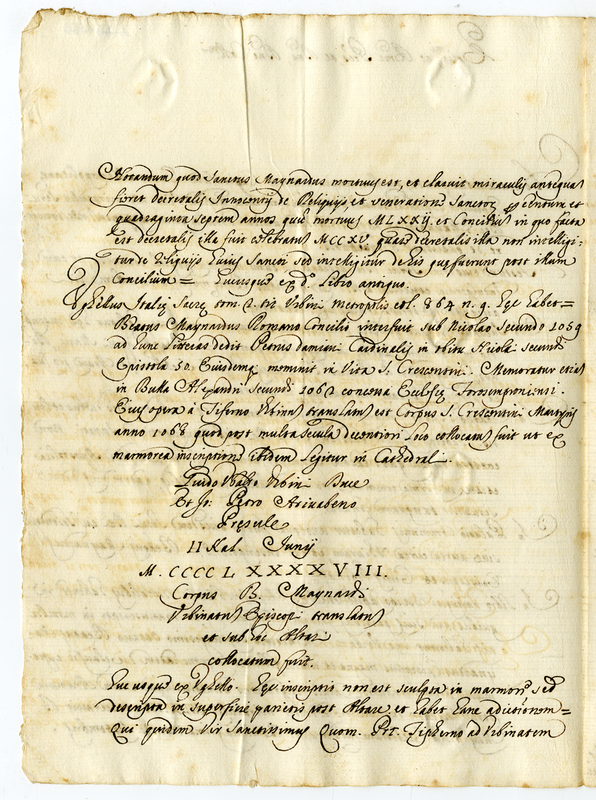 Notandum quod Sanctus Maynardus mortuus est, et claruit miraculis antequa
fieret decretalis Innocentij de Reliquijs et veneratione Sanctor centum et
quadraginta septem annos quia mortuus MLXXIJ. et Concilius in quo facta
est decretalis illa fuit celebratus MCCXV. quare decretalis illa non intelligi-
tur de Reliquijs huius Sancti sed intelligitur de his que fuerunt post illum
Concilium = Hucusque ex d.º Libro antiquo.
Vghellus Italię Sacrę tom. 2. tit. Vrbini Metropolis col. 864 n. 9. Hęc habet =
Beatus Maynardus Romano Concilio interfuit sub Nicolao Secundo 1059
ad hunc Litteras dedit Petrus damiani Cardinalis in obitu Nicolai secundi
Epistola 50. Eiusdemq meminit in Vita S. Crescentini. Memoratur etia
in Bulla Alexandri Secundi 1062 concessa Ecclesię Forosemproniensi.
Eius opera à Tiferno Vrbinũ translatũ est Corpus S. Crescentini Martyris
anno 1068 quod post multa secula decentiori loco collocatũ fuit ut ex
marmorea inscriptione ibidem legitur in Cathedrali.
Guido Vbaldo Vrbini Duce
Et Jo: Petro Arivabeno
Pręsule
II Kal. Junij
M. CCCC L XXXX VIII.
Corpus B. Maynardi
Vrbinatũ Episcopi translatũ
et sub hoc Altari
collocatum fuit.
Huc usque ex Vghello. Hęc inscriptio non est sculpta in marmore sed
descripta in superficie parietis post Altare et habet hanc additionem =
Qui quidem Vir Sanctissimus Tipherno ad Vrbinatem